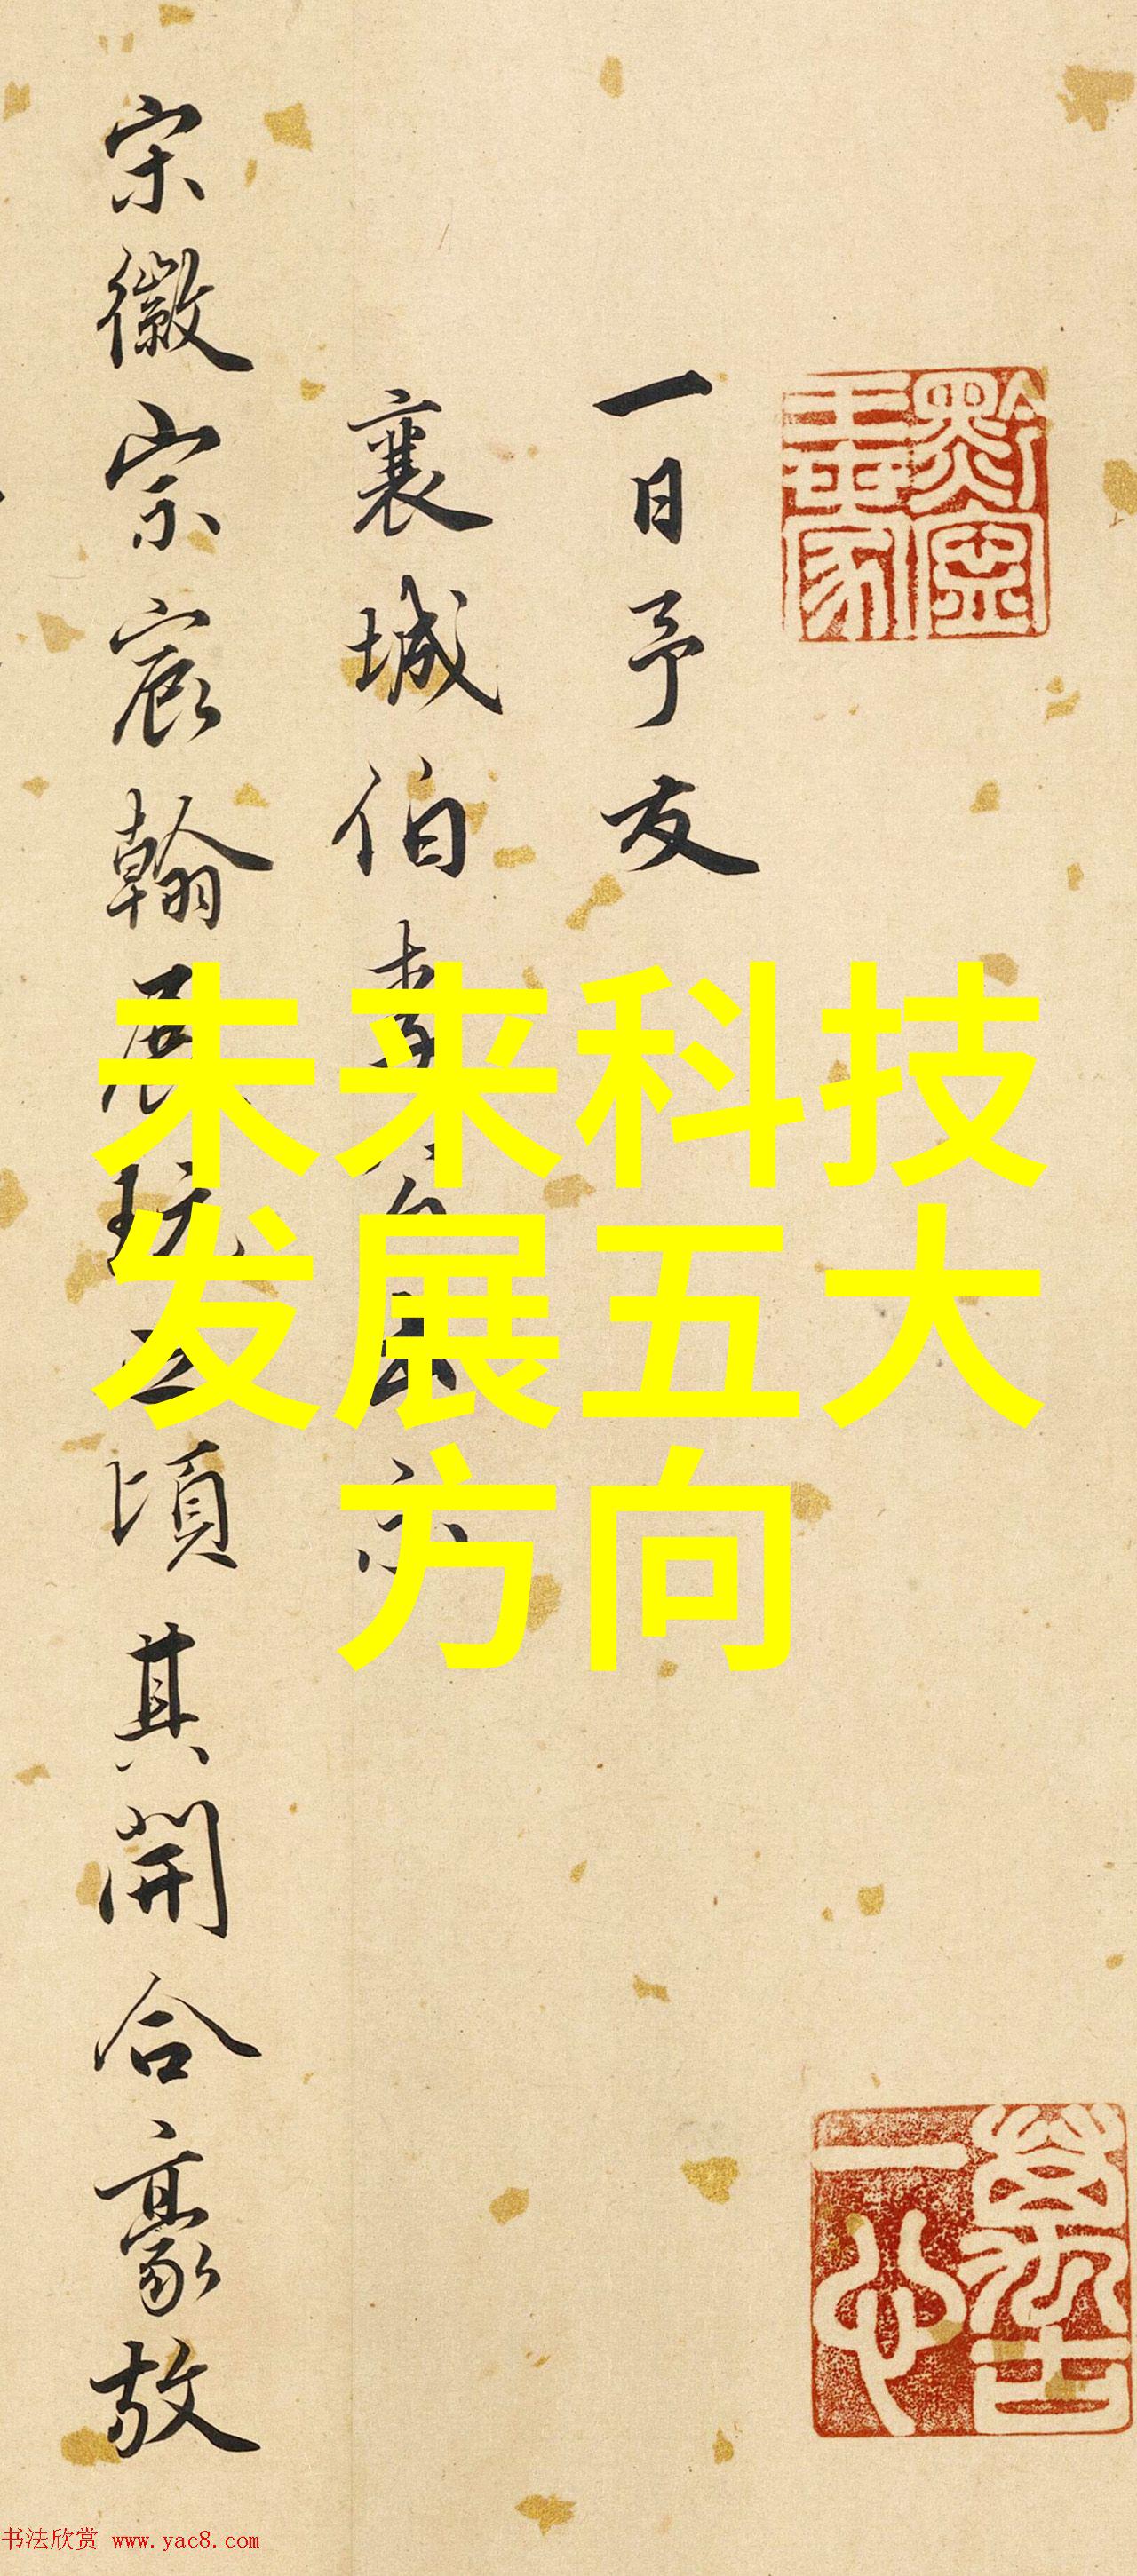 一日予友
襄城伯李公出示
宋徽宗宸翰展玩之頃其開合豪放
未来科技
发展五大
方向
书法欣赏 www.yac8.com